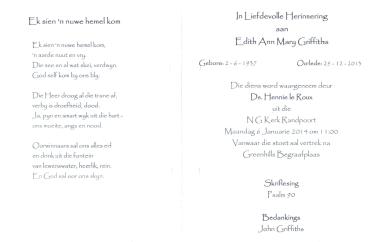 Ek sien 'n nuwe hemel kom
Ek sien 'n nuwe hemel kom,
'n aarde nuut en vry.
Die see en al wat skei, verdwyn.
God self kom by ons bly.
Die Heer droog al die trane af,
verby is droefheid, dood.
Ja, pyn en smart wyk uit die hart -
ons moeite, angs en nood.
Oorwinnaars sal ons alles erf
en drink uit die fontein
van lewenswater, heerlik, rein.
En God sal oor ons skyn.
In Liefdevolle Herinnering
aan
Edith Ann Mary Griffiths
Gebore: 2 - 6 - 1937 Oorlede: 25 - 12 - 2013
Die diens word waargeneem deur
Ds. Hennie le Roux
uit die
N.G. Kerk Randpoort
Maandag 6 Januarie 2014 om 11:00
Vanwaar die stoet sal vertrek na
Greenhills Begraafplaas
Skriflesing
Psalm 90
Bedankings
John Griffiths